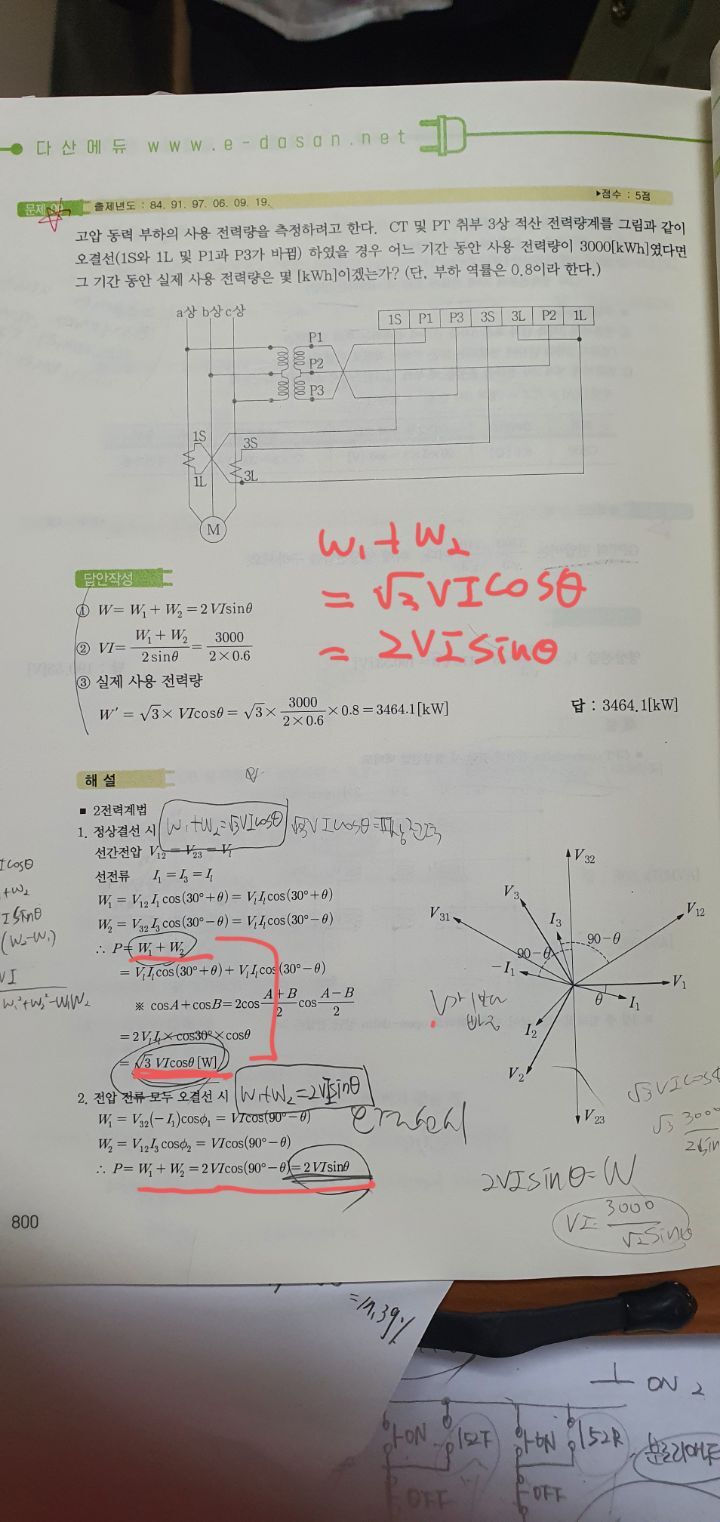 다산에듀 www.e-dasan.net
문제 출제년도 : 84. 91. 97. 06. 09. 19. ▶점수 : 5점
고압 동력 부하의 사용 전력량을 측정하려고 한다. CT 및 PT 취부 3상 적산 전력량계를 그림과 같이
오결선(1S와 1L 및 P1과 P3가 바뀜) 하였을 경우 어느 기간 동안 사용 전력량이 3000[kWh]였다면
그 기간 동안 실제 사용 전력량은 몇 [kWh]이겠는가? (단, 부하 역률은 0.8이라 한다.)
a상 b상 c상
1S P1 P3 3S 3L P2 1L
P1
P2
P3
1S 3S
1L 3L
M
W₁+W₂
= √3VIcosθ
= 2VIsinθ
답안작성
① W= W₁+ W₂ = 2VIsinθ
② VI= (W₁+ W₂)/(2sinθ) = 3000/(2×0.6)
③ 실제 사용 전력량
W′ = √3× VIcosθ= √3× 3000/(2×0.6) ×0.8=3464.1[kW]
답 : 3464.1[kW]
해설
■ 2전력계법
1. 정상결선 시 W₁+W₂=√3VIcosθ
선간전압 V₁₂ = V₂₃ = Vₗ
선전류 I₁ = I₃ = Iₗ
W₁ = V₁₂ I₁ cos(30°+θ) = VₗIₗcos(30°+θ)
W₂ = V₃₂ I₃ cos(30°−θ) = VₗIₗcos(30°−θ)
∴ P= W₁+ W₂
= VₗIₗcos(30°+θ)+ VₗIₗcos(30°−θ)
※ cosA+cosB=2cos (A+B)/2 cos (A−B)/2
=2VₗIₗ×cos30°×cosθ
= √3 VIcosθ[W]
2. 전압 전류 모두 오결선 시 W₁+W₂=2VIsinθ
W₁ = V₃₂(−I₁)cosϕ₁ = VIcos(90°−θ)
W₂ = V₁₂I₃cosϕ₂ = VIcos(90°−θ)
∴ P= W₁+ W₂ = 2VIcos(90°−θ)=2VIsinθ
V₃₂
V₃
V₃₁ I₃ V₁₂
90−θ 90−θ
−I₁ V₁
θ I₁
I₂
V₂
V₂₃
2VIsinθ=W
800
=11.39%
ON 2
ON 152F ON 152R
OFF OFF